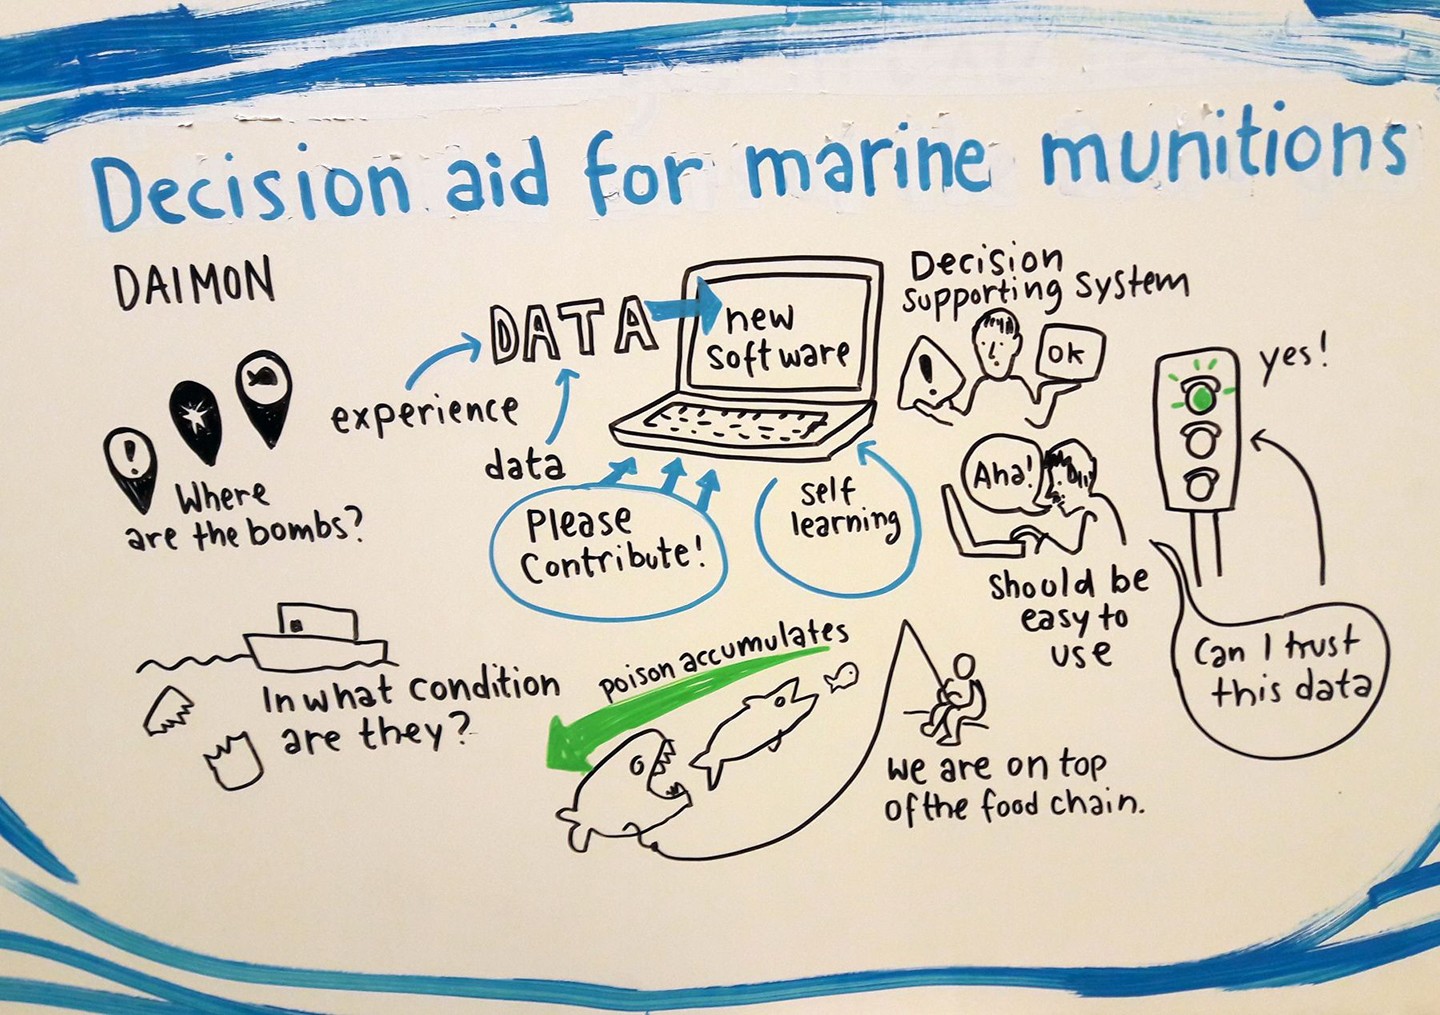 Decision aid for marine munitions
DAIMON
!
Where
are the bombs?
experience
DATA
data
new
software
Please
Contribute!
self
learning
Decision
supporting system
!
OK
Aha!
should be
easy to
use
yes!
Can I trust
this data
In what condition
are they?
poison accumulates
we are on top
of the food chain.